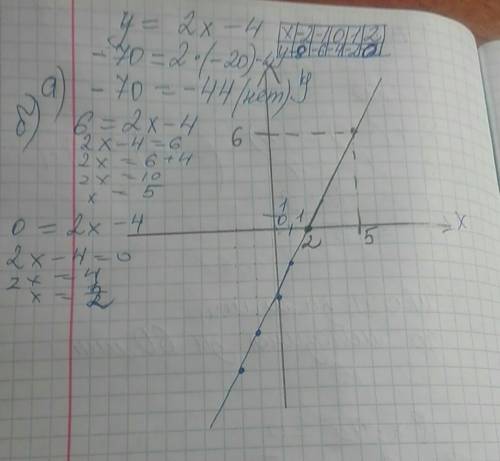 y = 2x - 4
x -2 -1 0 1 2
y -8 -6 -4 -2 0
-70 = 2·(-20) - 4
а) -70 = -44 (нет)
б) 6 = 2x - 4
2x - 4 = 6
2x = 6 + 4
2x = 10
x = 5
0 = 2x - 4
2x - 4 = 0
2x = 4
x = 2
y
6
1
0 1
2
5
x